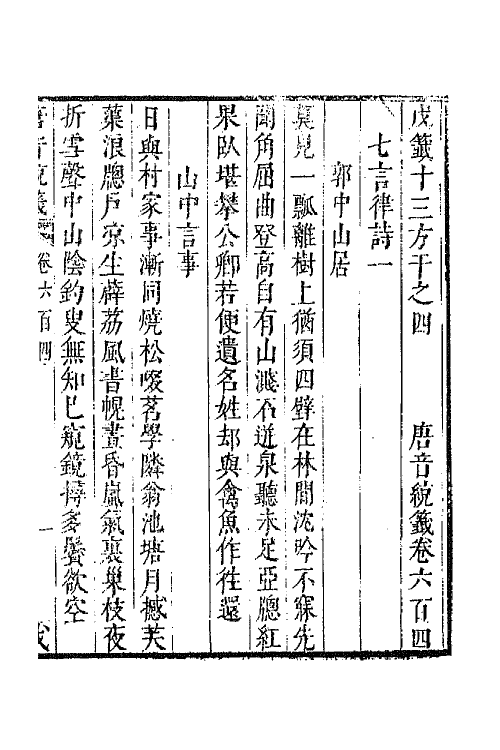 戊籤十三方干之四　唐音統籤卷六百四
七言律詩一
郭中山居
莫見一瓢離樹上猶須四壁在林間沈吟不寐先
聞角屈曲登高自有山濺石迸泉聽未足亞牕紅
果臥堪攀公卿若便遺名姓却與禽魚作往還
山中言事
日與村家事漸同燒松啜茗學隣翁池塘月撼芙
蕖浪牕戶凉生薜荔風書幌晝昏嵐氣裏巢枝夜
折雪聲中山陰釣叟無知已窺鏡撏多鬢欲空
唐音統籤 卷六百四 一 戊